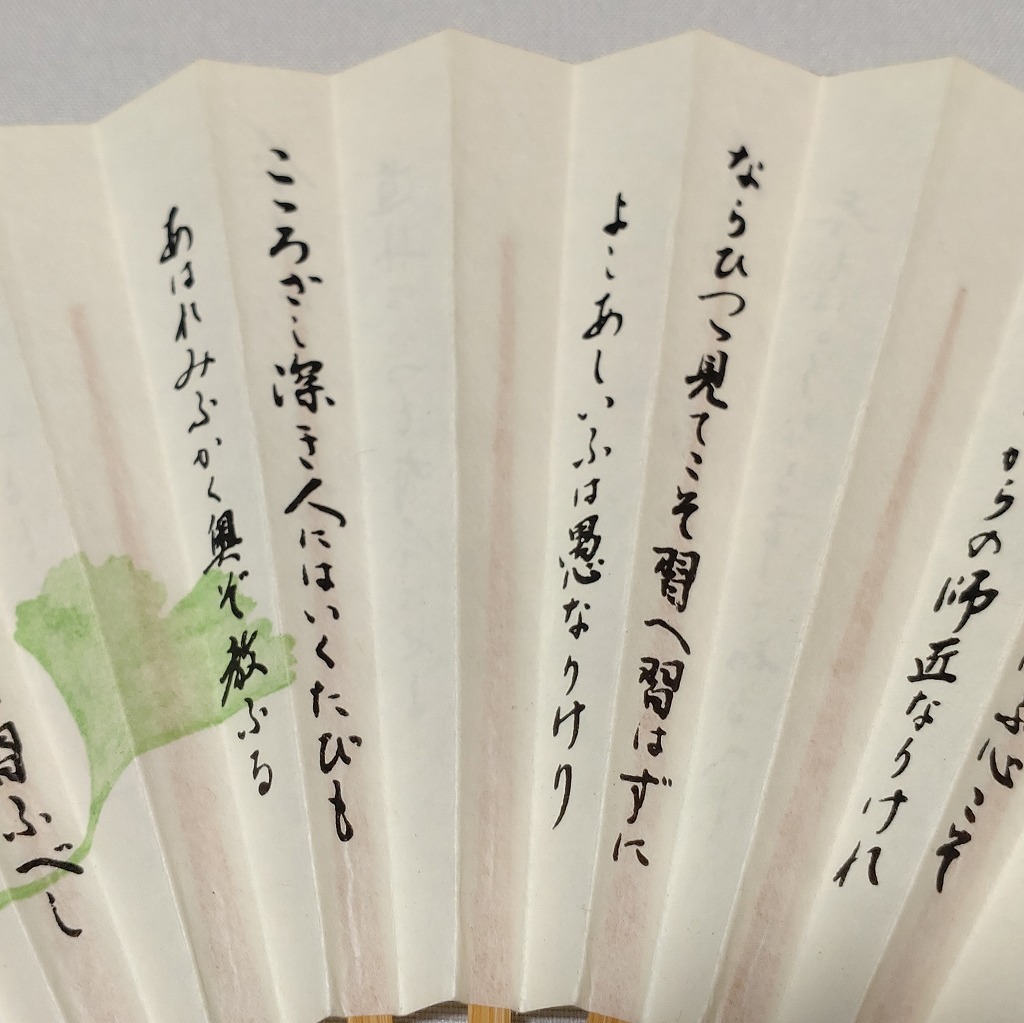 心こそ
からの師匠なりけれ
ならひつゝ見てこそ習へ習はずに
よしあしいふは愚なりけり
こゝろざし深き人にはいくたびも
あはれみふかく奥ぞ教ふる
習ふべし